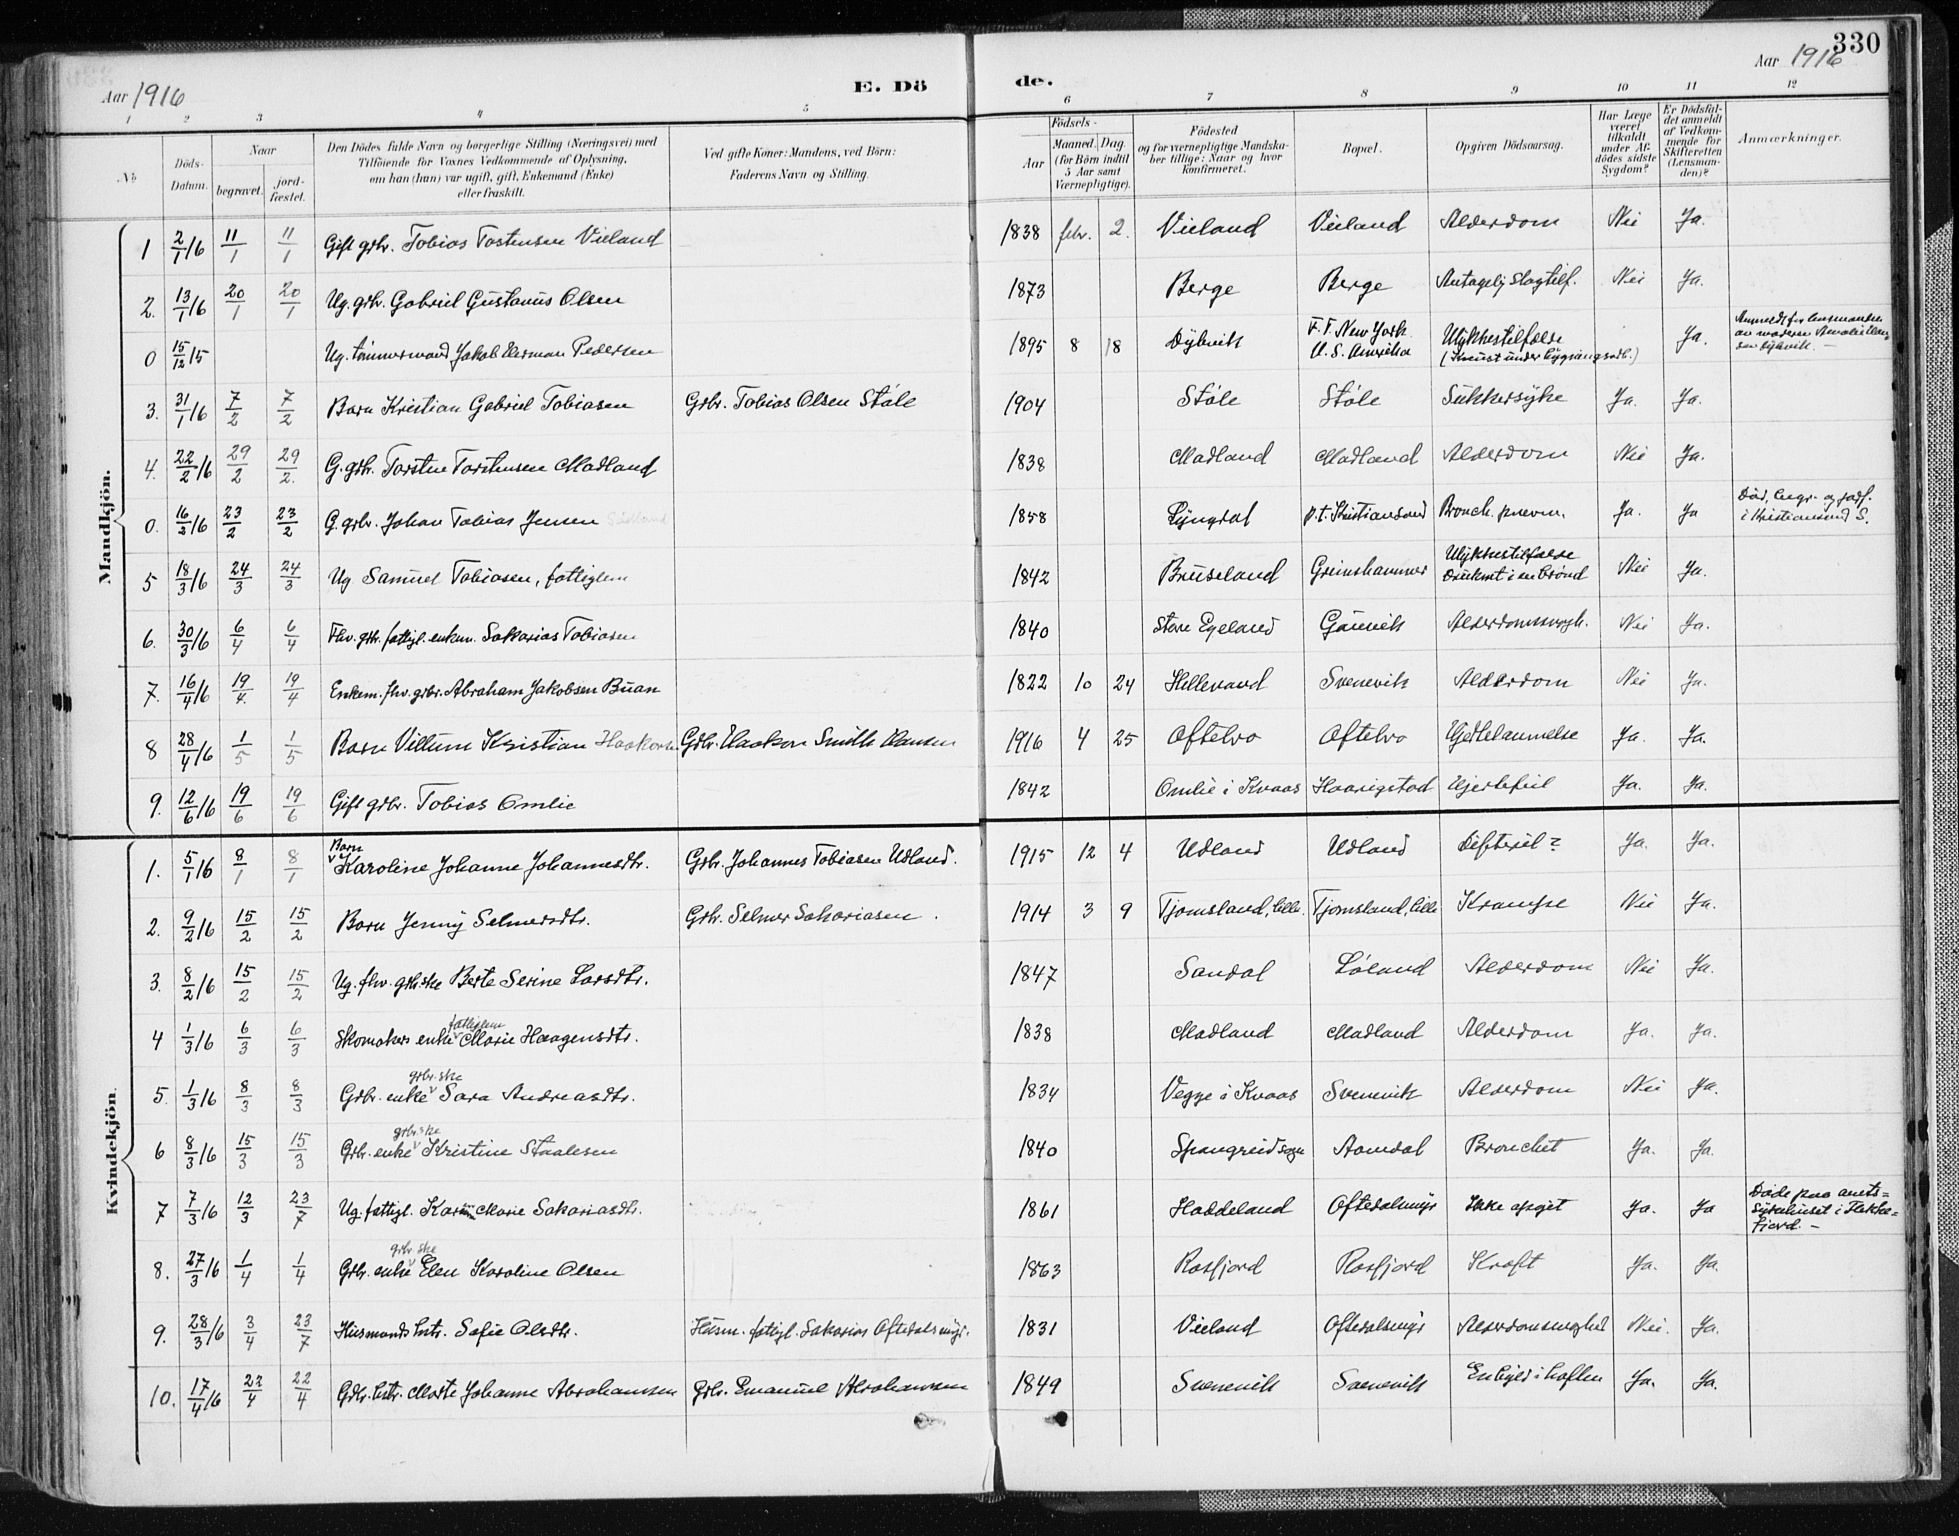 330
Aar 1916
E. Dö
de.
Aar 1916
1 2 3 4 5 6 7 8 9 10 11 12
No
Döds-Datum.
Naar
begravet.
jord-fæstet.
Den Dödes fulde Navn og borgerlige Stilling (Næringsvei) med
Tilföiende for Voxnes Vedkommende af Oplysning,
om han (hun) var ugift, gift, Enkemand (Enke)
eller fraskilt.
Ved gifte Koner: Mandens, ved Börn:
Faderens Navn og Stilling.
Födsels-
Aar
Maaned. Dag.
(for Börn indtil
5 Aar samt
Værnepligtige).
Födested
og for værnepligtige Mandska-
ber tillige: Naar og hvor
konfirmeret.
Bopæl.
Opgiven Dödsaarsag.
Har Læge
været
tilkaldt
under Af-
dödes sidste
Sygdom?
Er Dödsfal-
det anmeldt
af Vedkom-
mende for
Skifteretten
(Lensman-
den)?
Anmærkninger.
Mandkjön.
1 2/1 16 11/1 11/1 Gift grbr. Tobias Tostensen Vieland 1838 febr. 2. Vieland Vieland Alderdom Nei Ja.
2. 13/1 16 20/1 20/1 Ug. grbr. Gabriel Gustavus Olsen 1873 Berge Berge Antagelig slagtilf. Nei Ja.
0 15/12 15 Ug. tømmermand Jakob Herman Pedersen 1895 8 18 Dybvik F. F. New York U. S. Amerika Ulykkestilfælde (Knust under bygningsarb.) Ja. Anmeldt for lensmanden av moderen Amalie Hansen Dybvik. —
3. 31/1 16 7/2 7/2 Barn Kristian Gabriel Tobiasen Grbr. Tobias Olsen Støle 1904 Støle Støle Sukkersyke Ja. Ja.
4. 22/2 16 29/2 29/2. G. grbr. Torsten Torstensen Madland 1838 Madland Madland Alderdom Nei Ja.
0. 16/2 16 23/2 23/2 G. grbr. Johan Tobias Jensen 1858 Lyngdal p. t. Kristiansand Bronch. pnevm. Ja. Ja Død, begr. og jordf. i Kristiansand S.
5 18/3 16 24/3 24/3 Ug Samuel Tobiasen, fattiglem 1842 Bruseland Greinshammer Ulykkestilfælde Druknet i en brønd Nei Ja.
6. 30/3 16 6/4 6/4 Fhv. grbr. fattigl. enkem. Sakarias Tobiasen 1840 Store Egeland Gaurvik Alderdomssvagh. Nei Ja.
7. 16/4 16 19/4. 19/4 Enkem. fhv. grbr. Abraham Jakobsen Buan 1822 10 24 Hillevand Svenevik Alderdom Nei Ja.
8 28/4 16 1/5 1/5 Barn Villum Kristian Haakonsen Grbr. Haakon Smith Hansen 1916 4 25 Oftebro Oftebro Hjertelammelse Ja. Ja.
9. 12/6 16 19/6 19/6 Gift grbr. Tobias Omlie 1842 Omlie i Kvaas Haarigstad Hjertefeil Ja. Ja.
Kvindekjön.
1. 5/1 16 8/1 8/1 Barn Karoline Johanne Johannesdtr. Grbr. Johannes Tobiasen Udland. 1915 12 4 Udland Udland Difteri? Ja. Ja.
2. 9/2 16 15/2 15/2 Barn Jenny Selmersdtr. Grbr. Selmer Sakariasen. 1914 3 9 Tjomsland, lille. Tjomsland, lille Krampe Nei Ja.
3. 8/2 16 15/2 15/2 Ug. fhv. grbrske Berte Serine Larsdtr. 1847 Sandal Løland Alderdom Nei Ja.
4 1/3 16 6/3 6/3 Skomakers enke fattiglem Marie Haagensdtr. 1838 Madland Madland Alderdom Ja. Ja.
5. 1/3 16 8/3 8/3 Grbr. enke grbr.ske Sara Andreasdtr. 1834 Vegge i Kvaas Svenevik Alderdom Nei Ja.
6 8/3 16 15/3 15/3 Grbr. enke grbr.ske Kristine Staalesen 1840 Spangreid sogn Aamdal Bronchet Ja. Ja.
7 7/3 16 12/3 23/7 Ug. fattigl. Karen Marie Sakariasdtr. 1861 Haddeland Oftedalsmyr Ikke opgit Ja. Ja Døde paa amts=sykehuset i Flekke=fjord. —
8. 27/3 16 1/4 1/4 Grbr. enke grbr ske Elen Karoline Olsen 1863 Rosfjord Rosfjord Kræft Ja. Ja.
9. 28/3 16 3/4 23/7 Husmands hstr. Sofie Olsdtr. Husm. fattigl. Sakarias Oftedalsmyr. 1831 Vieland Oftedalsmyr Alderdomssvaghed Nei. Ja.
10. 17/4 16 22/4 22/4 Grbr. hstr. Marte Johanne Abrahamsen Grbr. Emanuel Abrahamsen 1849 Svenevik Svenevik En byld i hoften Ja. Ja.